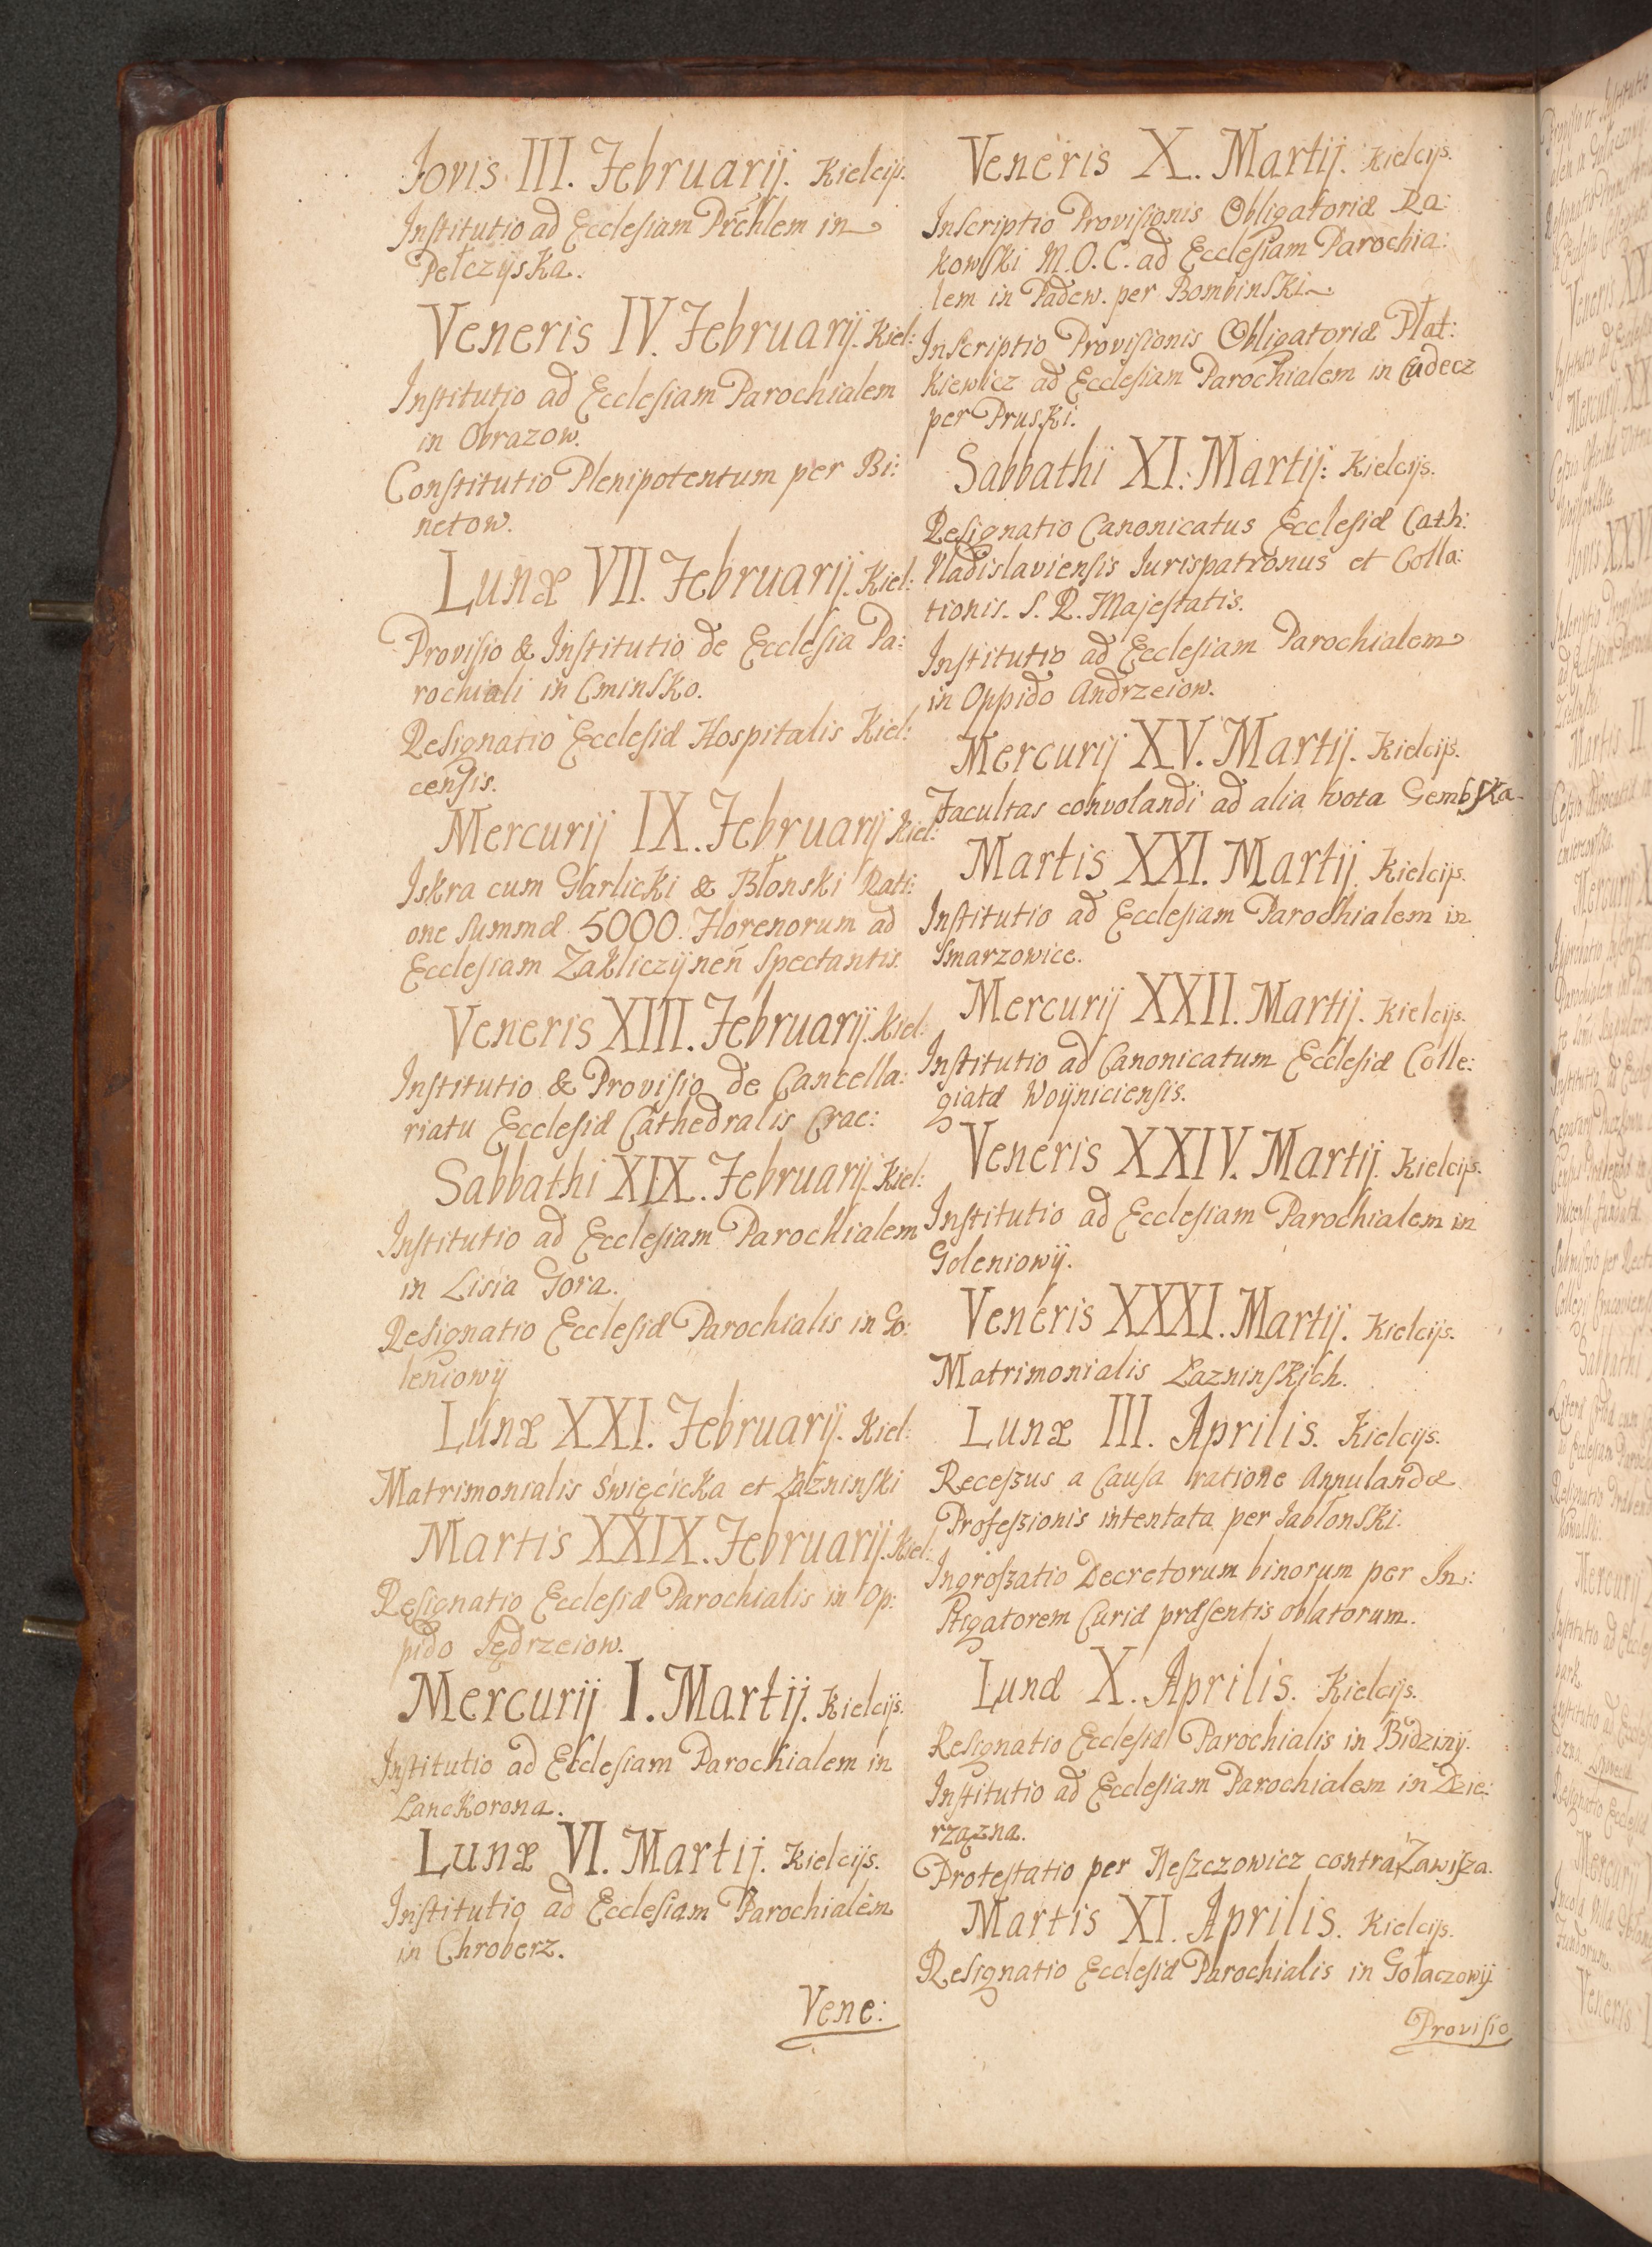 Jovis III. Februarij. Kielcijs.
Institutio ad Ecclesiam Prćhlem in
Pełczyska.
Veneris IV. Februarij. Kiel:
Institutio ad Ecclesiam Parochialem
in Obrazow.
Constitutio Plenipotentum per Bi:
netow.
Lunæ VII. Februarij. Kiel:
Provisio & Institutio de Ecclesia Pa:
rochiali in Cminsko.
Resignatio Ecclesiæ Hospitalis Kiel:
censis.
Mercurij IX. Februarij Kiel:
Iskra cum Garlicki & Błonski Rati:
one summæ 5000. Florenorum ad
Ecclesiam Zakliczÿneñ Spectantis.
Veneris XIII. Februarij. Kiel:
Institutio & Provisio de Cancella:
riatu Ecclesiæ Cathedralis Crac:
Sabbathi XIX. Februarij. Kiel:
Institutio ad Ecclesiam Parochialem
in Lisia Gora.
Resignatio Ecclesiæ Parochialis in Go:
leniowÿ
Lunæ XXI. Februarij. Kiel:
Matrimonialis Święćicka et Łázninski
Martis XXIX. Februarij. Kiel:
Resignatio Ecclesiæ Parochialis in Op:
pido Jędrzeiow.
Mercurij I. Martij. Kielcijs.
Institutio ad Ecclesiam Parochialem in
Lanckorona.
Lunæ VI. Martij. Kielcijs.
Institutio ad Ecclesiam Parochialem
in Chroberz.
Vene:
Veneris X. Martij. Kielcijs.
Inscriptio Provisionis Obligatoriæ Ra:
kowski M.O.C. ad Ecclesiam Parochia:
lem in Padew. per Bombinski
Inscriptio Provisionis Obligatoriæ Płat:
kiewicz ad Ecclesiam Parochialem in Cudecz
per Pruski.
Sabbathi XI. Martij. Kielcijs.
Resignatio Canonicatus Ecclesiæ Cath:
Vladislaviensis Jurispatronus et Colla:
tionis. S. R. Majestatis.
Institutio ad Ecclesiam Parochialem
in Oppido Andrzeiow.
Mercurij XV. Martij. Kielcijs.
Facultas convolandi ad alia Vota Gembska.
Martis XXI. Martij. Kielcijs.
Institutio ad Ecclesiam Parochialem in
Smarzowice.
Mercurij XXII. Martij. Kielcijs.
Institutio ad Canonicatum Ecclesiæ Colle:
giatæ Woÿniciensis.
Veneris XXIV. Martij. Kielcijs.
Institutio ad Ecclesiam Parochialem in
Goleniowÿ.
Veneris XXXI. Martij. Kielcijs.
Matrimonialis Łazninskich.
Lunæ III. Aprilis. Kielcijs.
Receszus a Causa ratione Annulandæ
Profeszionis intentata per Jabłonski.
Ingroszatio Decretorum binorum per In:
stigatorem Curiæ præsentis oblatorum.
Lunæ X. Aprilis. Kielcijs.
Resignatio Ecclesiæ Parochialis in Bidzinÿ.
Institutio ad Ecclesiam Parochialem in Dzie:
rzązna.
Protestatio per Neszczowicz contra Zawisza.
Martis XI. Aprilis. Kielcijs.
Resignatio Ecclesiæ Parochialis in Gołaczowÿ
Provisio